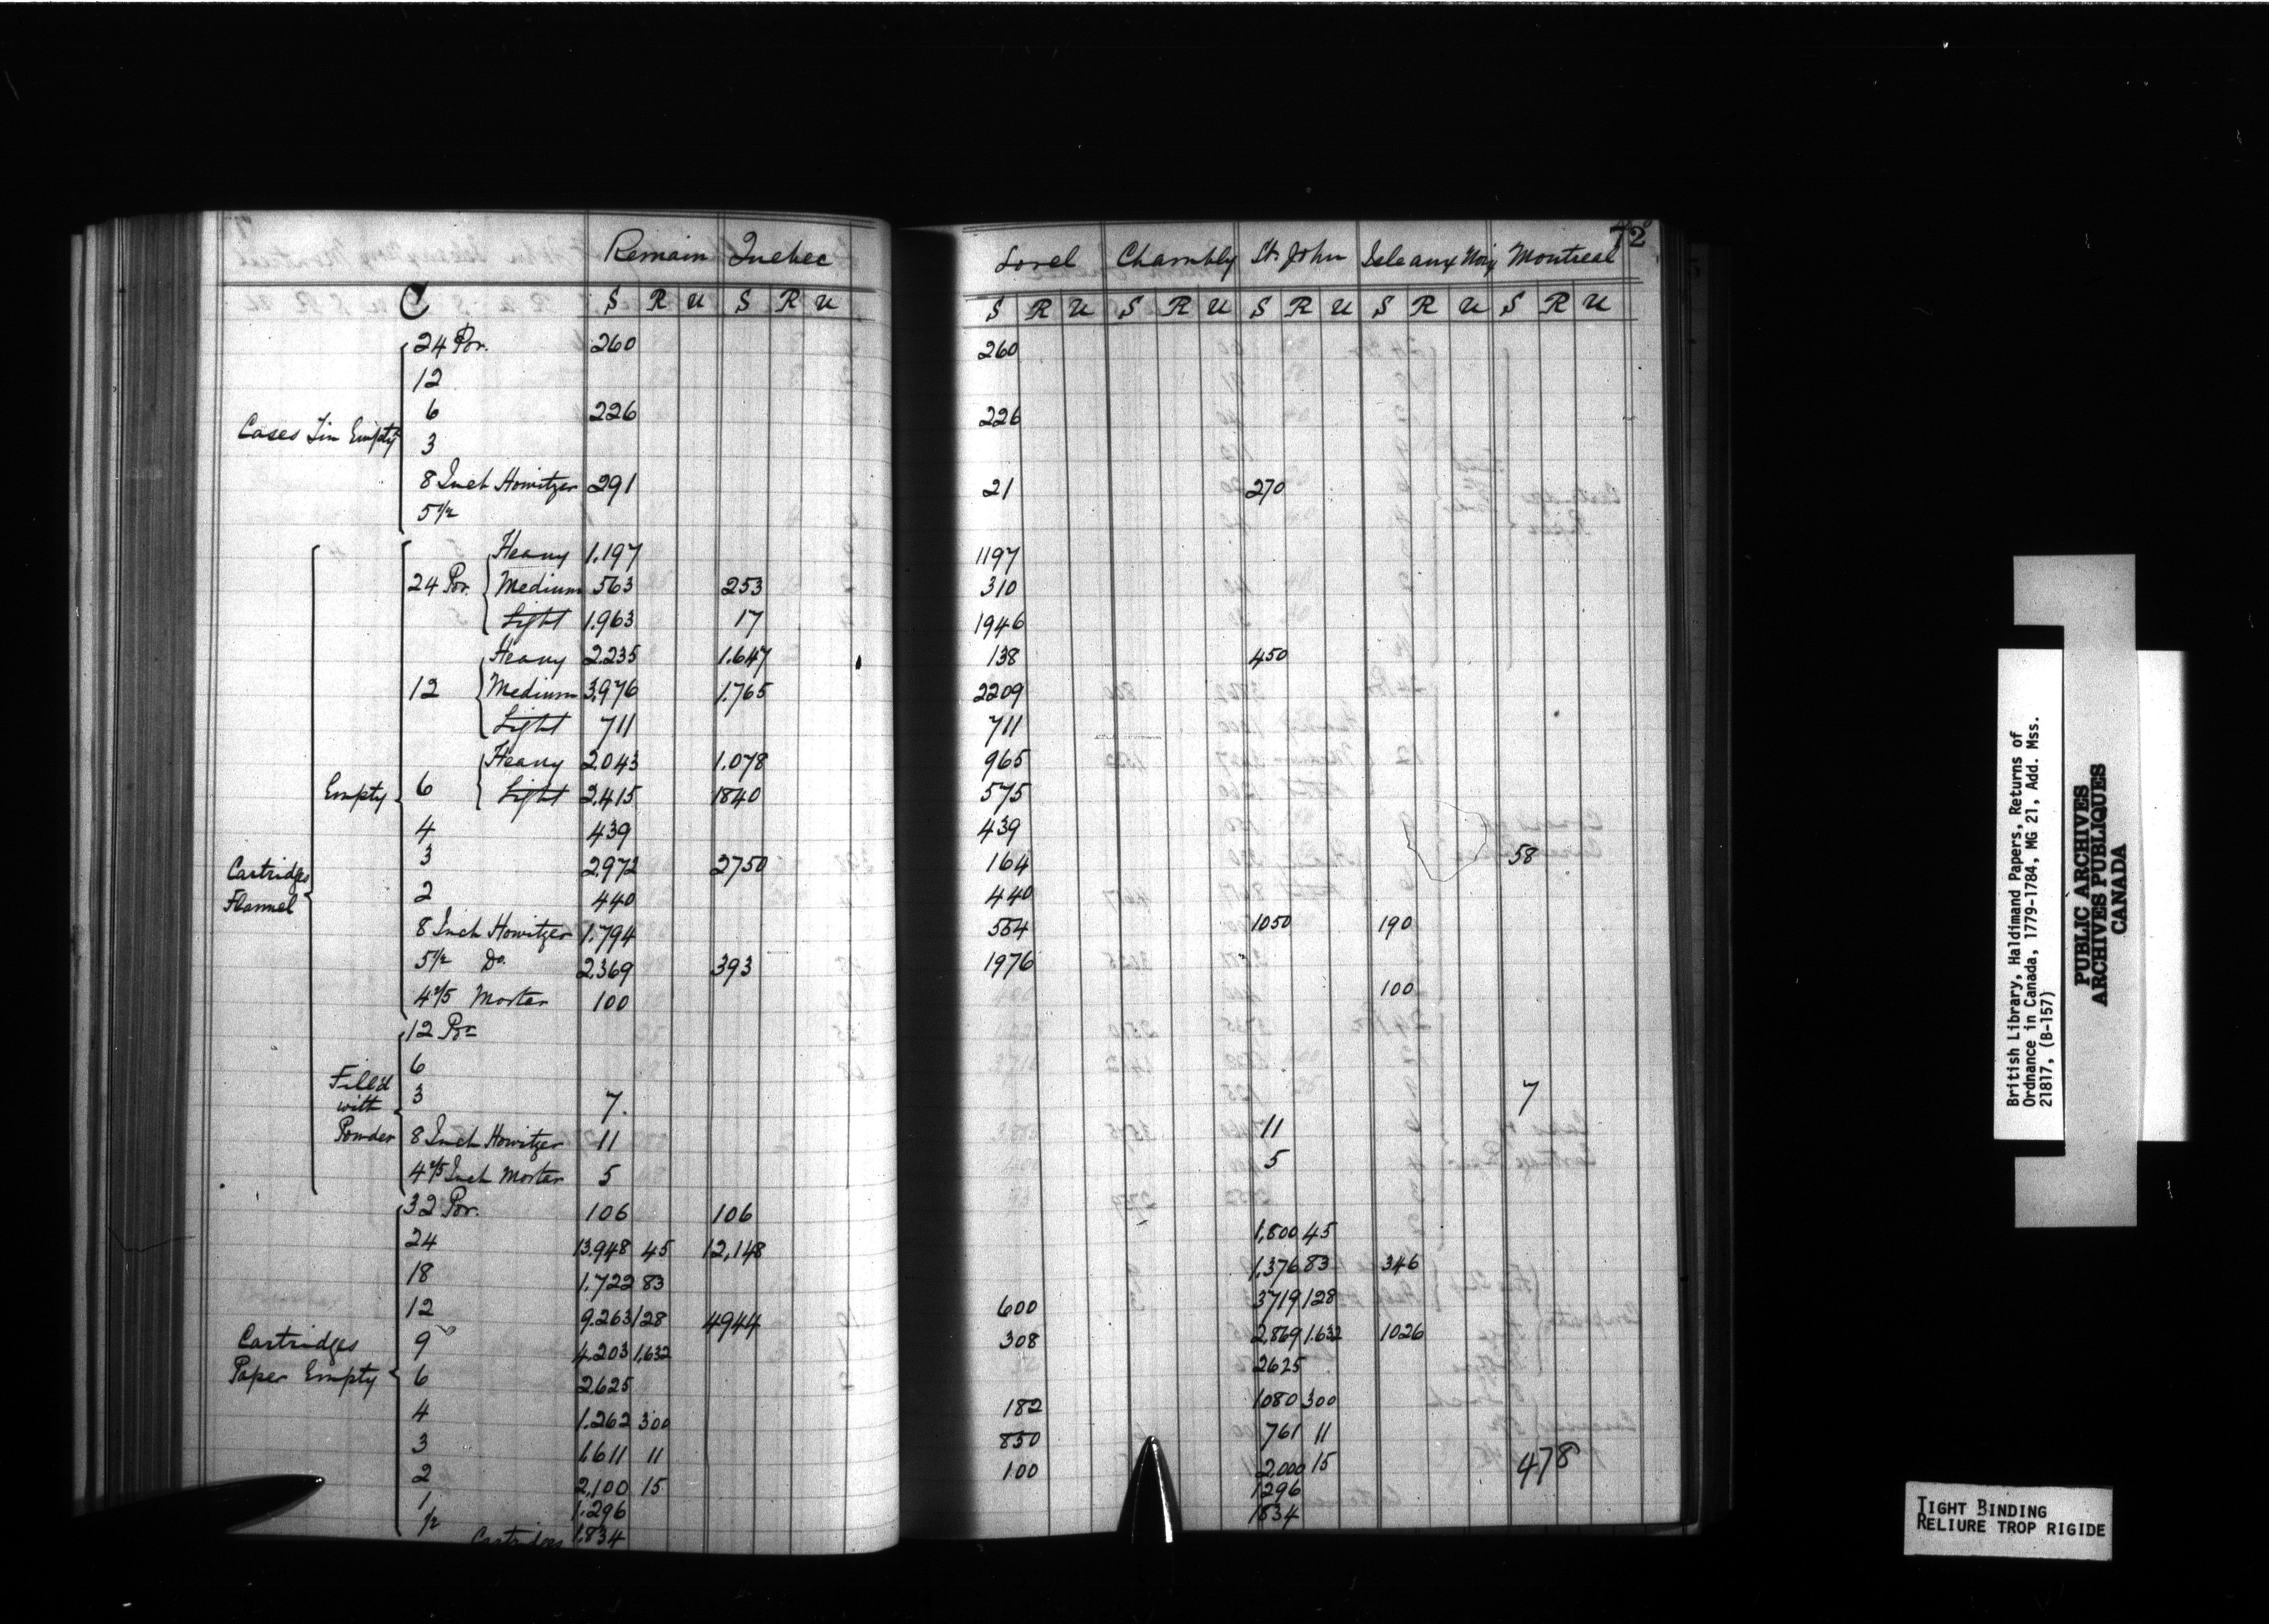 72
Remain Quebec Sorel Chambly St. John Isle aux Noix Montreal
C S R U S R U S R U S R U S R U S R U S R U
24 Por. 260 260
12
6 226 226
Cases Tin Empty
3
8 Inch Howitzer 291 21 270
5 1/2
Heavy 1.197 1197
24 Por. Medium 563 253 310
Light 1.963 17 1946
Heavy 2.235 1.647 138 450
12 Medium 3.976 1.765 2209
Light 711 711
Heavy 2.043 1.078 965
Empty 6 Light 2.415 1840 575
4 439 439
3 2.972 2750 164 58
Cartridges
Flannel
2 440 440
8 Inch Howitzer 1.794 554 1050 190
5 1/2 Do. 2.369 393 1976
4 2/5 Mortar 100 100
12 Pr
6
Filled
with
Powder
3 7. 7
8 Inch Howitzer 11 11
4 2/5 Inch Mortar 5 5
32 Por. 106 106
24 13.948 45 12,148 1,800 45
18 1.722 83 1,376 83 346
12 9.263 128 4944 600 3719 128
Cartridges
Paper Empty
9 4.203 1,632 308 2,869 1.632 1026
6 2.625 2625
4 1.262 300 182 1080 300
3 1.611 11 850 761 11
2 2,100 15 100 2,000 15 478
1 1.296 1296
1/2 1.834 1834
Cartridges
British Library, Haldimand Papers, Returns of
Ordnance in Canada, 1779-1784, MG 21, Add. Mss.
21817, (B-157)
PUBLIC ARCHIVES
ARCHIVES PUBLIQUES
CANADA
TIGHT BINDING
RELIURE TROP RIGIDE